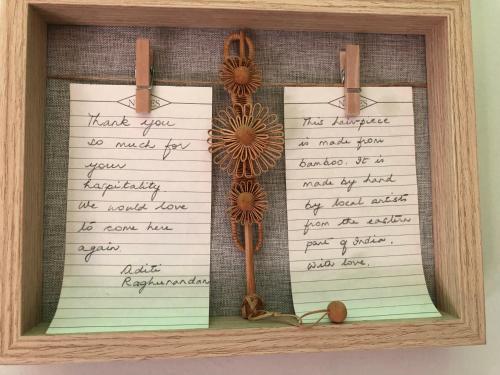 NOTES
Thank you
so much for
your
hospitality
We would love
to come here
again.
Aditi
Raghunandan
NOTES
This hair-piece
is made from
bamboo. It is
made by hand
by local artists
from the eastern
part of India.
With love.